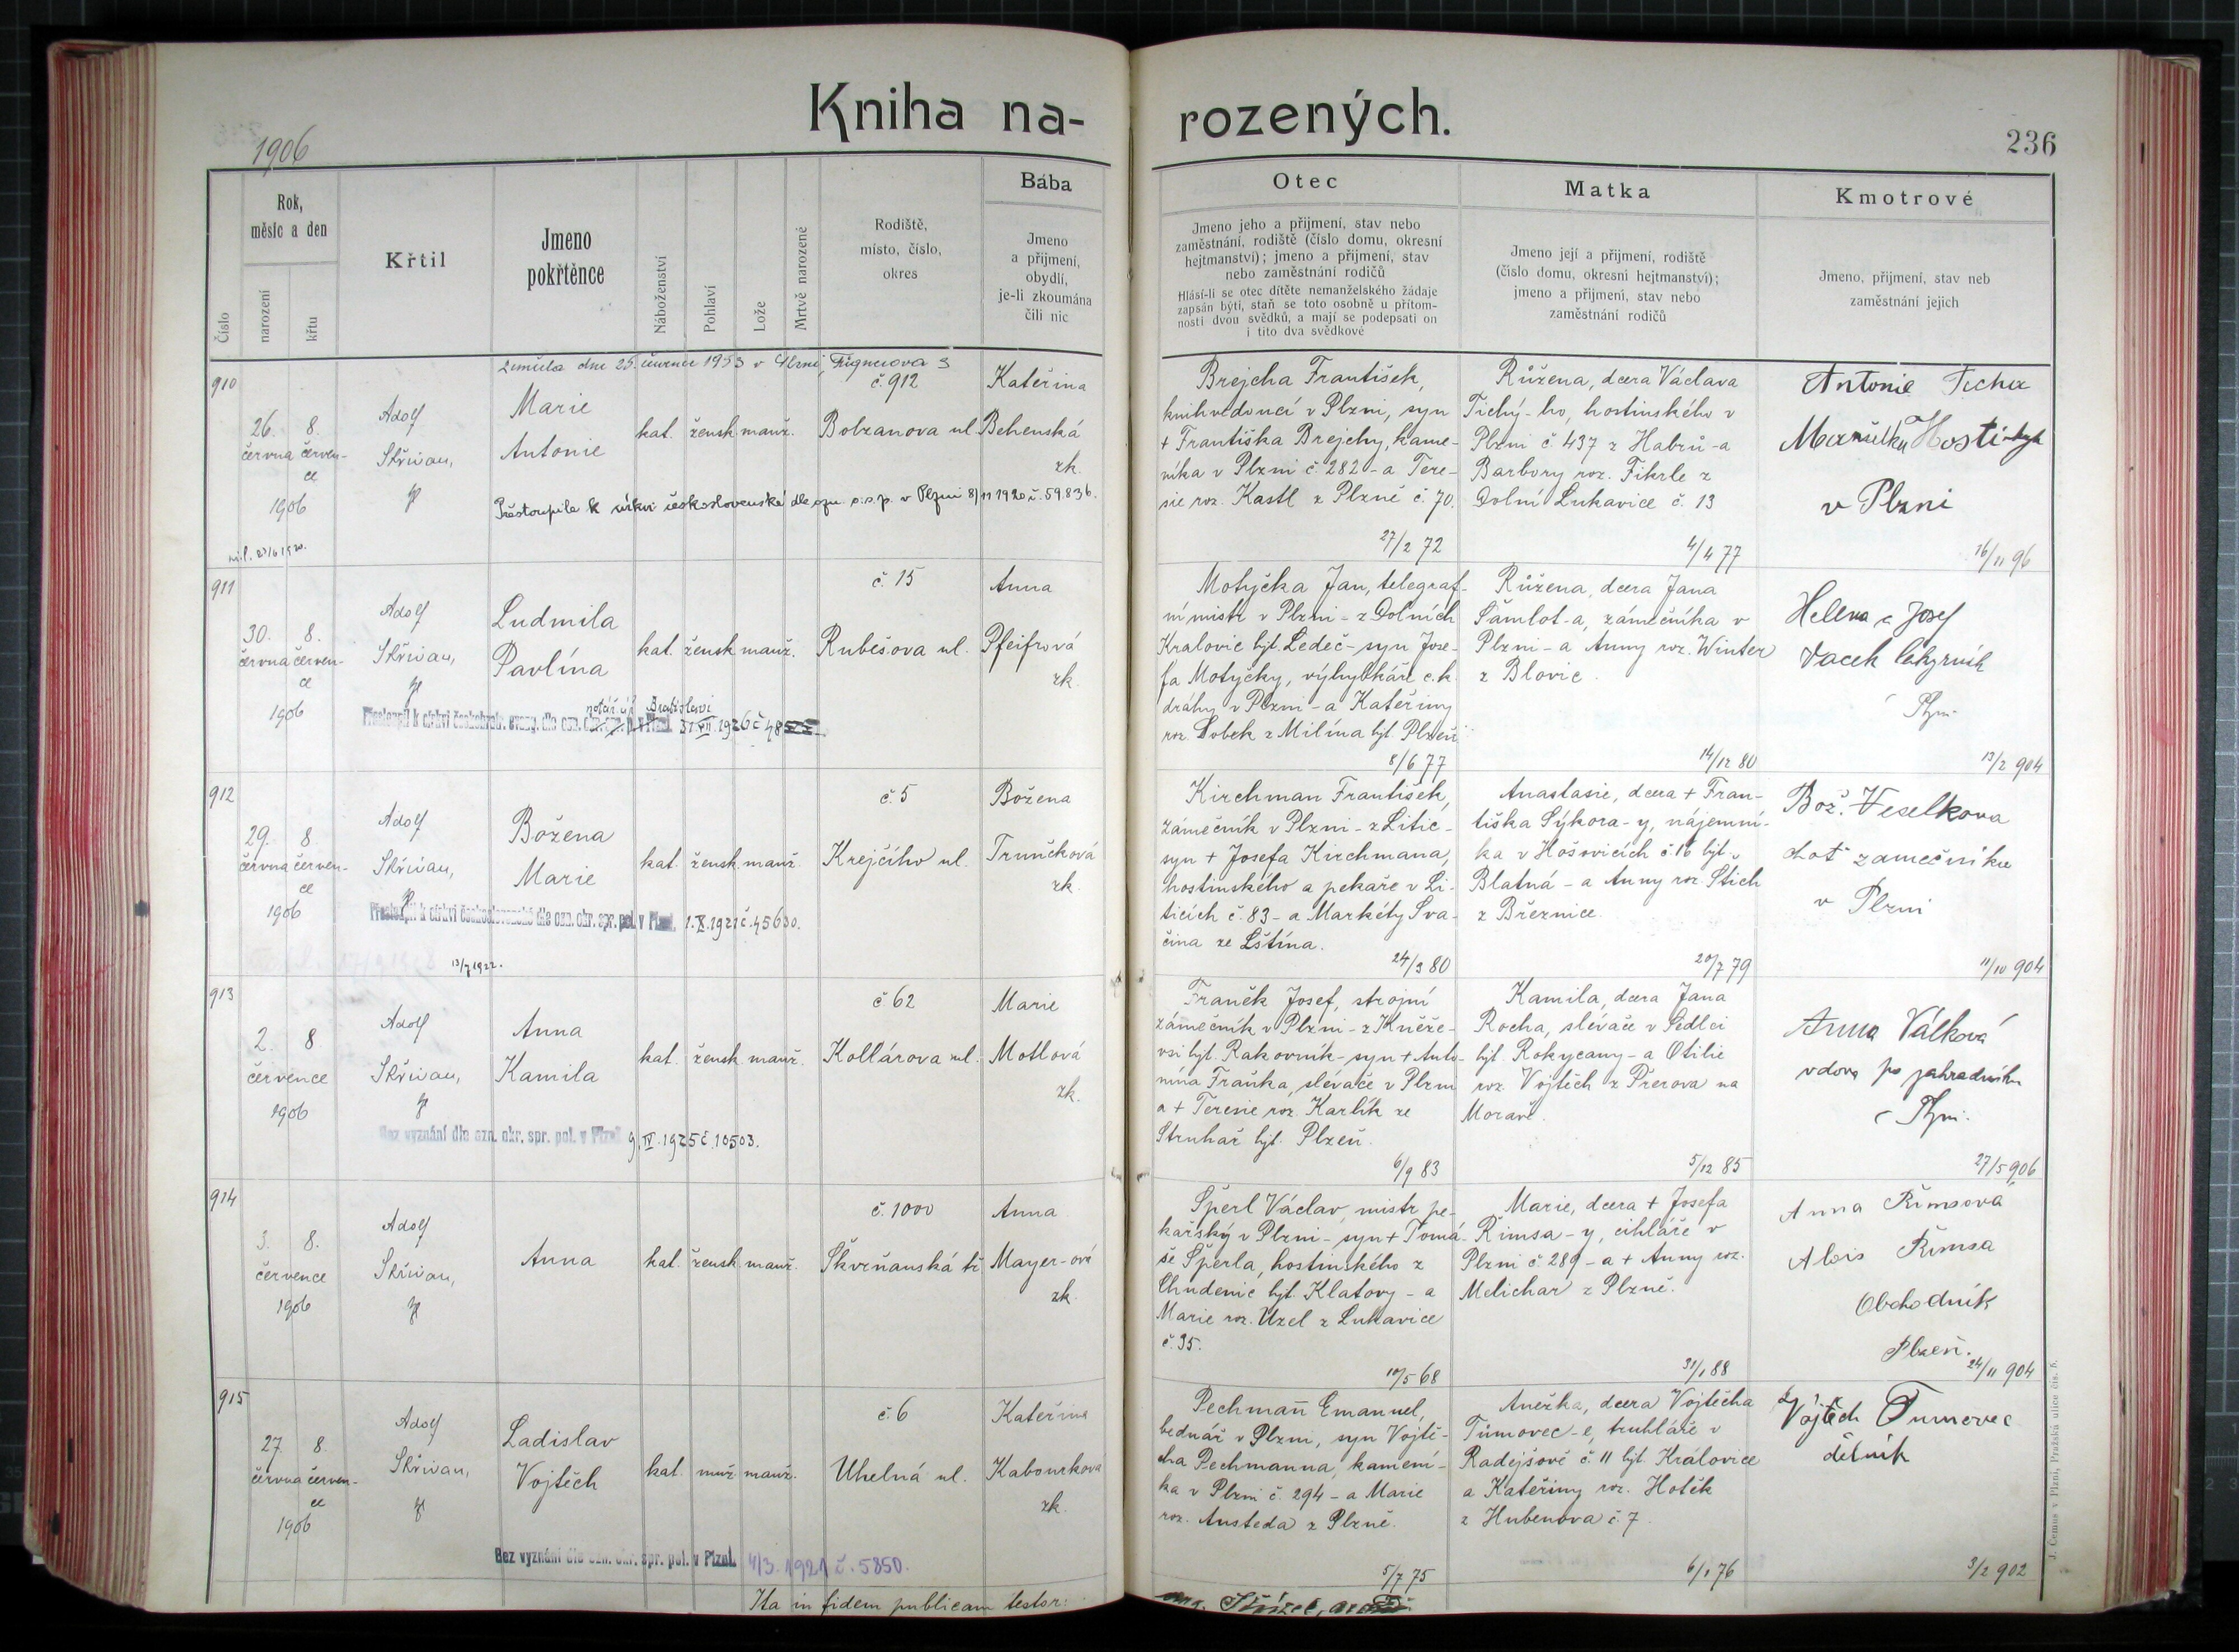 Kniha na-
rozených.
1906
236
Číslo
Rok,
měsíc a den
narození
křtu
Křtil
Jmeno
pokřtěnce
Náboženství
Pohlaví
Lože
Mrtvě narozené
Rodiště,
místo, číslo,
okres
Bába
Jmeno
a přijmení,
obydlí,
je-li zkoumána
čili nic
Otec
Jmeno jeho a přijmení, stav nebo
zaměstnání, rodiště (číslo domu, okresní
hejtmanství); jmeno a přijmení, stav
nebo zaměstnání rodičů
Hlásí-li se otec dítěte nemanželského žádaje
zapsán býti, staň se toto osobně u přítom-
nosti dvou svědků, a mají se podepsati on
i tito dva svědkové
Matka
Jmeno její a přijmení, rodiště
(číslo domu, okresní hejtmanství);
jmeno a přijmení, stav nebo
zaměstnání rodičů
Kmotrové
Jmeno, přijmení, stav neb
zaměstnání jejich
910
26. 8.
června červen-
ce
1906
Adolf
Skřivan,
zemřela dne 25. července 1953 v Plzni, Fügnerova 3
Marie
Antonie
kat. žensk. manž.
č. 912
Bolzanova ul.
Kateřina
Behenská
zk.
Přestoupila k církvi československé dle ozn. o.s.p. v Plzni 8/11 1920 č. 59.836.
Brejcha František,
knihvedoucí v Plzni, syn
+ Františka Brejchy, kame-
níka v Plzni č. 282 - a Tere-
sie roz. Kastl z Plzně č. 70.
27/2 72
Růžena, dcera Václava
Tichý-ho, hostinského v
Plzni č 437 z Habrů - a
Barbory roz. Fikrle z
Dolní Lukavice č. 13
4/4 77
Antonie Tichá
v Plzni
16/11 96
911
30. 8.
června červen-
ce
1906
Adolf
Skřivan,
Ludmila
Pavlína
kat. žensk. manž.
č. 15
Rubešova ul.
Anna
Pfeifrová
zk.
Přestoupil k církvi českobratr. evang. dle ozn.
Motyčka Jan, telegraf-
ní mistr v Plzni - z Dolních
Kralovic hjt. Ledeč - syn Jose-
fa Motyčky, výhybkáře c. k.
dráhy v Plzni - a Kateřiny
roz. Sobek z Milína hjt. Plzeň
8/6 77
Růžena, dcera Jana
Šamlot-a, zámečníka v
Plzni - a Anny roz. Winter
z Blovic.
14/12 80
Helena a Josef
Vacek
13/2 904
912
29. 8
června červen-
ce
1906
Adolf
Skřivan,
Božena
Marie
kat. žensk. manž.
č. 5
Krejčího ul.
Božena
Trunčková
zk.
Přestoupil k církvi československé dle ozn. okr. spr. pol. v Plzni. 1.X.1921 č. 45630.
13/7 1922.
Kirchman František,
zámečník v Plzni - z Litic -
syn + Josefa Kirchmana,
hostinského a pekaře v Li-
ticích č. 83 - a Markéty Sva-
čina ze Lštína.
24/3 80
Anastasie, dcera + Fran-
tiška Sýkora-y, nájemní-
ka v Hošovicích č. 16 hjt.
Blatná - a Anny roz. Štich
z Březnice.
20/7 79
Bož. Veselkova
choť zamečníka
v Plzni
11/10 904
913
2. 8
července
1906
Adolf
Skřivan,
Anna
Kamila
kat. žensk. manž.
č 62
Kollárova ul.
Marie
Motlová
zk.
Bez vyznání dle ozn. okr. spr. pol. v Plzni 9.IV.1925 č. 10503.
Franěk Josef, strojní
zámečník v Plzni - z Kněže-
vsi hjt. Rakovník - syn + Anto-
nína Fraňka, slévače v Plzni
a + Teresie roz. Karlík ze
Struhař hjt. Plzeň.
6/9 83
Kamila, dcera Jana
Rocha, slévače v Sedlci
hjt. Rokycany - a Otilie
roz. Vojtěch z Přerova na
Moravě.
5/12 85
Anna Válková
vdova po zahradníku
27/5 906
914
3. 8.
července
1906
Adolf
Skřivan,
Anna
kat. žensk. manž.
č. 1000
Škvrňanská tř.
Anna
Mayer-ová
zk.
Šperl Václav, mistr pe-
kařský v Plzni - syn + Tomá-
še Šperla, hostinského z
Chudenic hjt. Klatovy - a
Marie roz. Uzel z Lukavice
č. 35.
10/5 68
Marie, dcera + Josefa
Řimsa-y, cihláře v
Plzni č. 289 - a + Anny roz.
Melichar z Plzně.
31/1 88
Anna Řimsová
Alois Řimsa
Obchodník
Plzeň.
24/11 904
915
27. 8.
června červen-
ce
1906
Adolf
Skřivan,
Ladislav
Vojtěch
kat. muž. manž.
č. 6
Uhelná ul.
Kateřina
Kabourkova
zk.
Bez vyznání dle ozn. okr. spr. pol. v Plzni. 4/3. 1921 č. 5850.
Pechmann Emanuel,
bednář v Plzni, syn Vojtě-
cha Pechmanna, kamení-
ka v Plzni č. 294 - a Marie
roz. Austeda z Plzně.
5/7 75
Anežka, dcera Vojtěcha
Tůmovec-e, truhláře v
Radejšově č. 11 hjt. Kralovice
a Kateřiny roz. Hoték
z Hubenova č. 7.
6/1 76
Vojtěch Tumovec
dělník
3/2 902
Ita in fidem publicam testor:
J. Čemus v Plzni, Pražská ulice čís. 6.